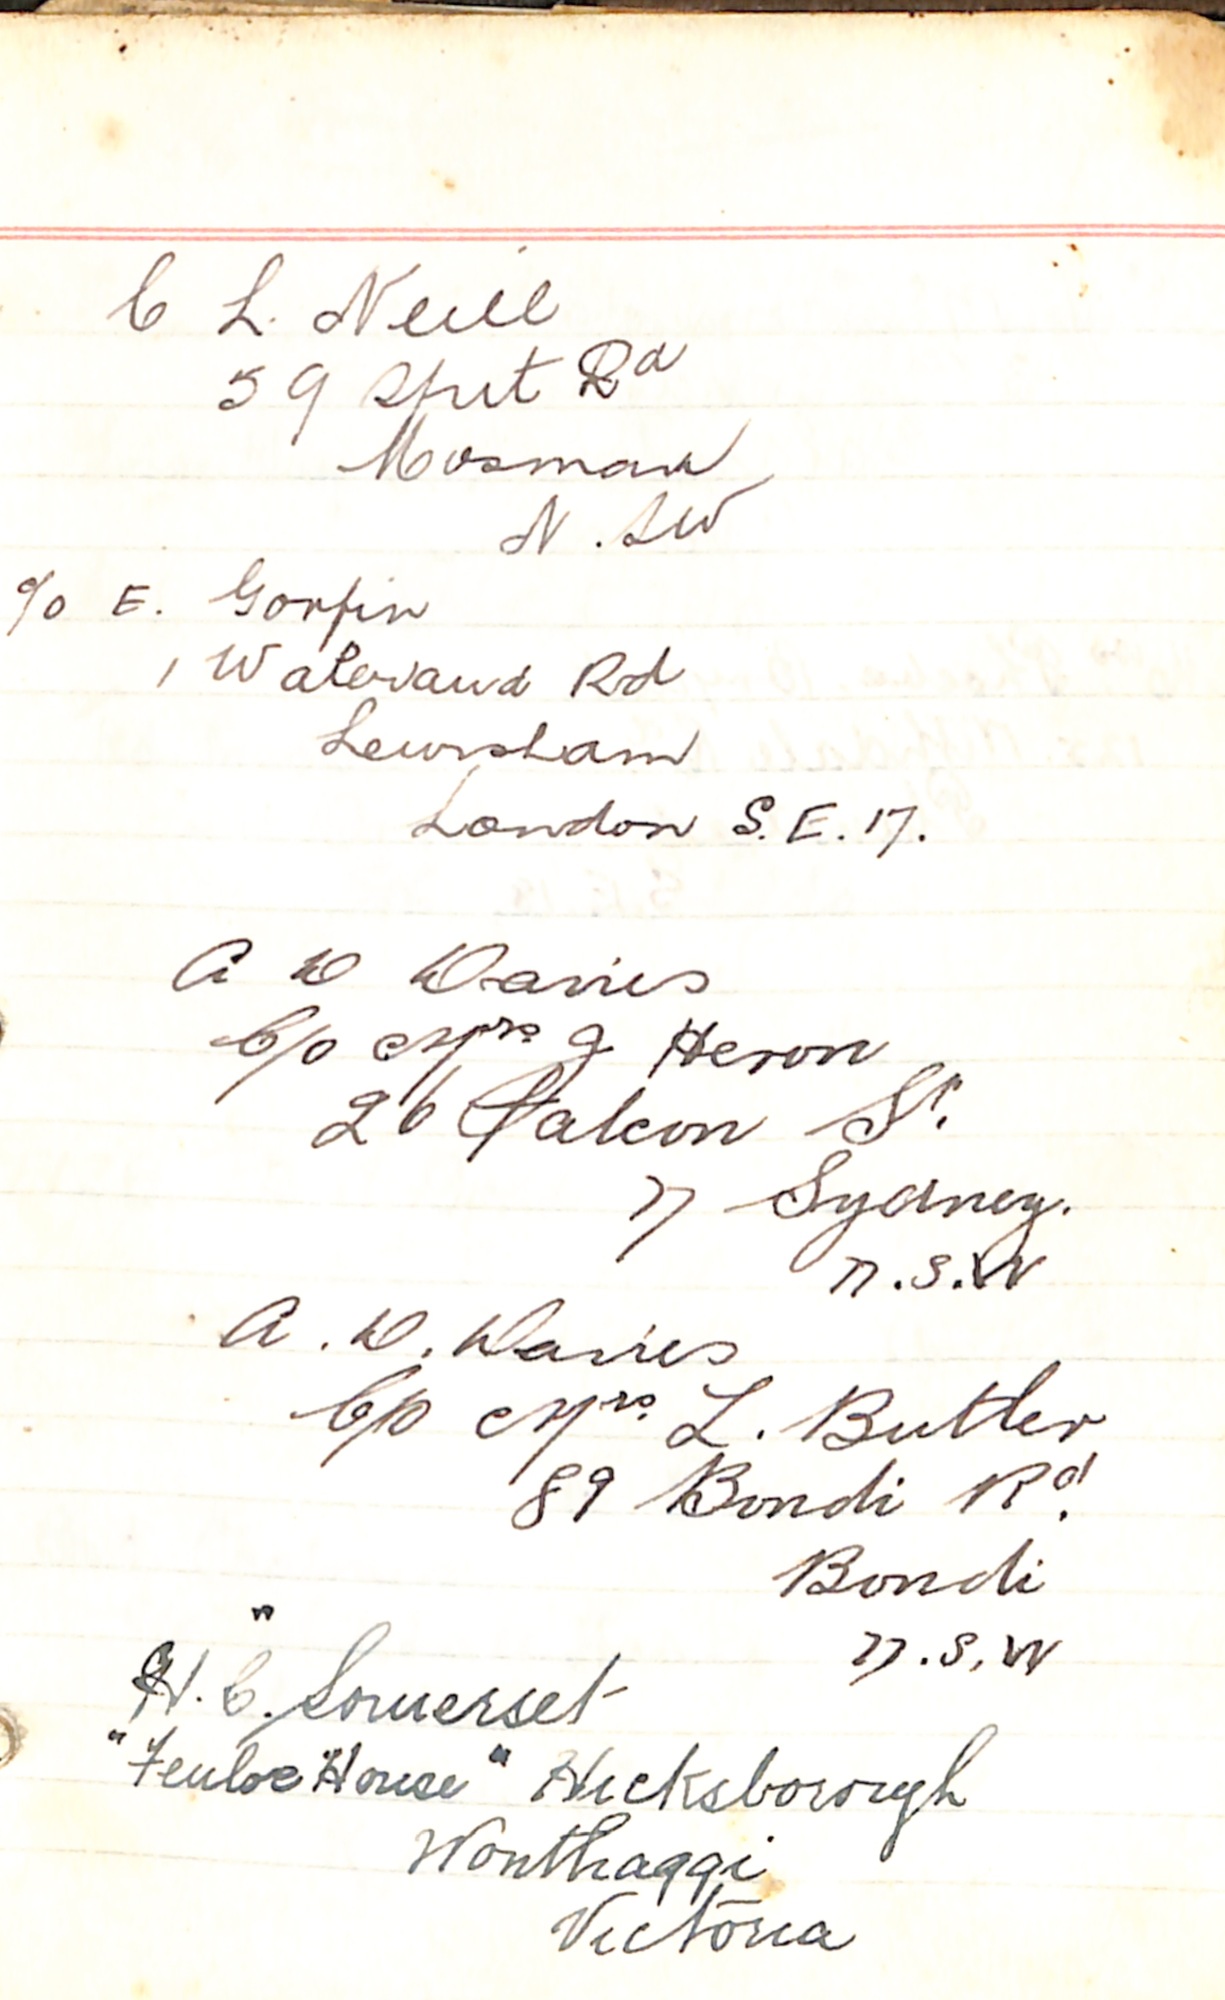 C L. Neill
59 Spit Rd
Mosman
N. SW
c/o E. Gorfin
1 Waterand Rd
Lewisham
London S.E. 17.
A W Davies
C/o Mrs J Heron
26 Falcon St.
N Sydney.
N.S.W
A. W. Davies
C/o Mrs. L. Butler
89 Bondi Rd.
Bondi
N.S.W
H. C. Somerset
"Fenloe House" Hicksborough
Wonthaggi
Victoria